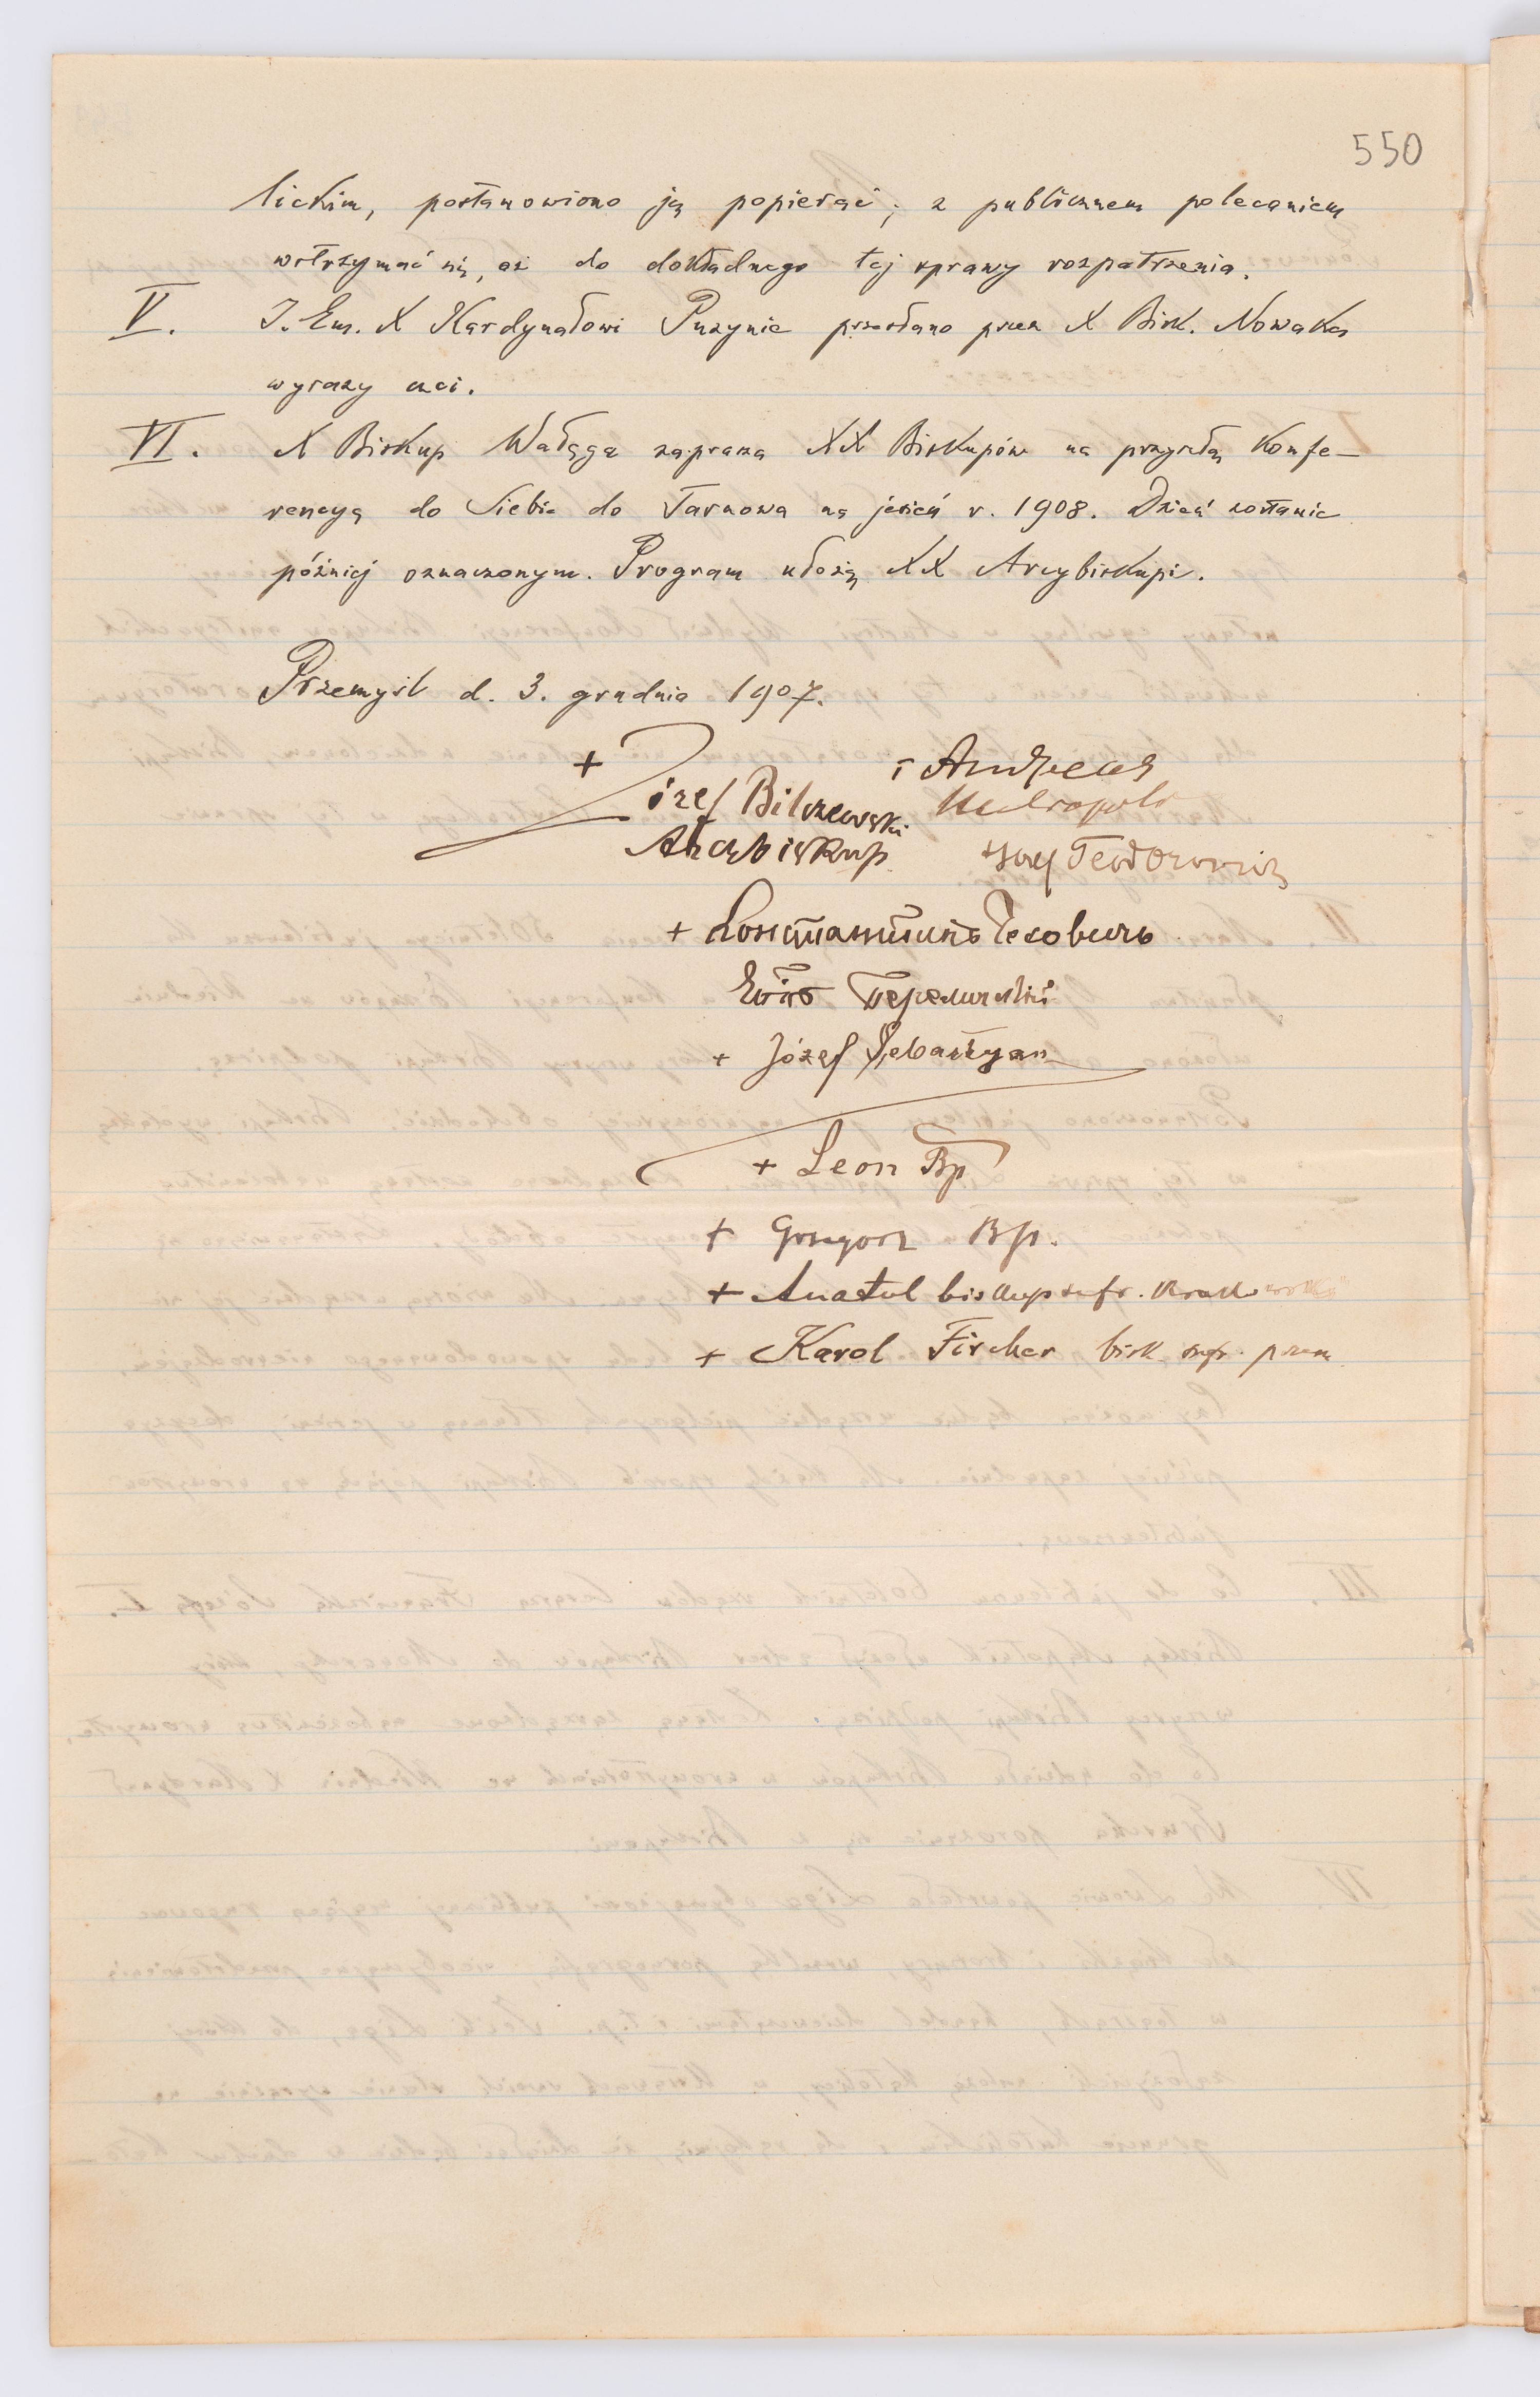 550
lickim, postanowiono ją popierać; z publicznem polecaniem
wstrzymać się, aż do dokładnego tej sprawy rozpatrzenia.
V. J. Em. X Kardynałowi Puzynie przesłano przez X Bisk. Nowaka
wyrazy czci.
VI. X Biskup Wałęga zaprasza XX Biskupów na przyszłą Konfe-
rencyę do Siebie do Tarnowa na jesień r. 1908. Dzień zostanie
później oznaczonym. Program ułożą XX Arcybiskupi.
Przemyśl d. 3. grudnia 1907.
+ Józef Bilczewski
Arcybiskup
+ Andreas
Metropolit
Józef Teodorowicz
+ Константинъ Чеховичъ
Епіс Перемиский
+ Józef Sebastyan
+ Leon Bp
+ Grzegorz Bp.
+ Anatol biskup sufr. krakowski
+ Karol Fischer bisk. suf. przem